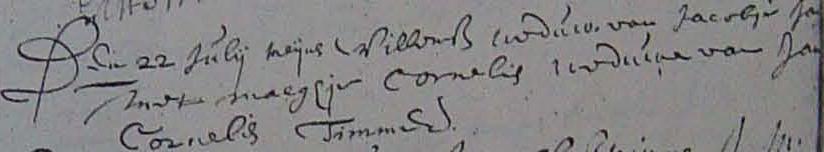 Den 22 Julij meijns Willemß weduw. van Jacobje Ja
met maegjie Cornelis weduwe van Jan
Cornelis Timmer.